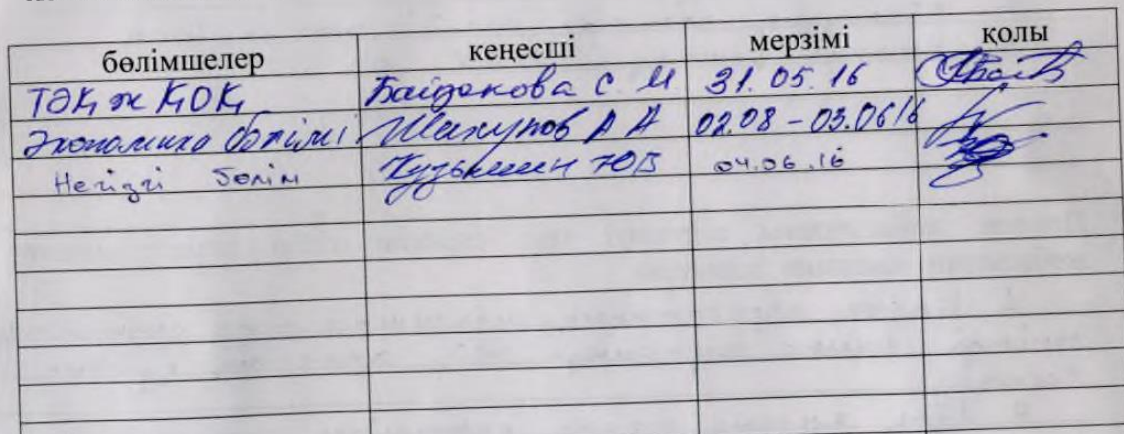 бөлімшелер кеңесші мерзімі қолы
ТӘҚ ж ҚОҚ Байдакова С. М 31.05.16
Экономика бөлімі А А 02.08 - 03.0616
Негізгі бөлім Кузьмин ЮВ 04.06.16